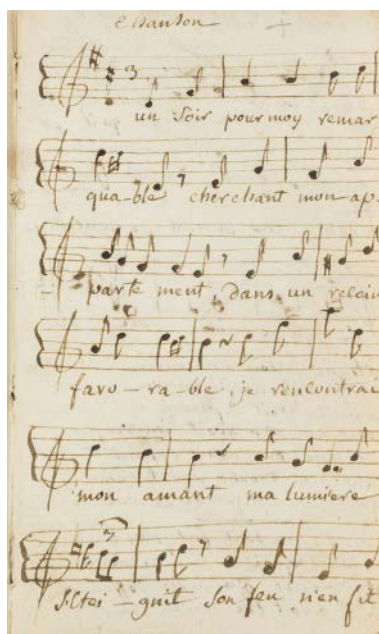 Chanson
un Soir pour moy remar
qua-ble cherchant mon ap-
parte ment, dans un recoin
favo-ra-ble je rencontrai
mon amant ma lumiere
S'etei-gnit Son feu n'en fit